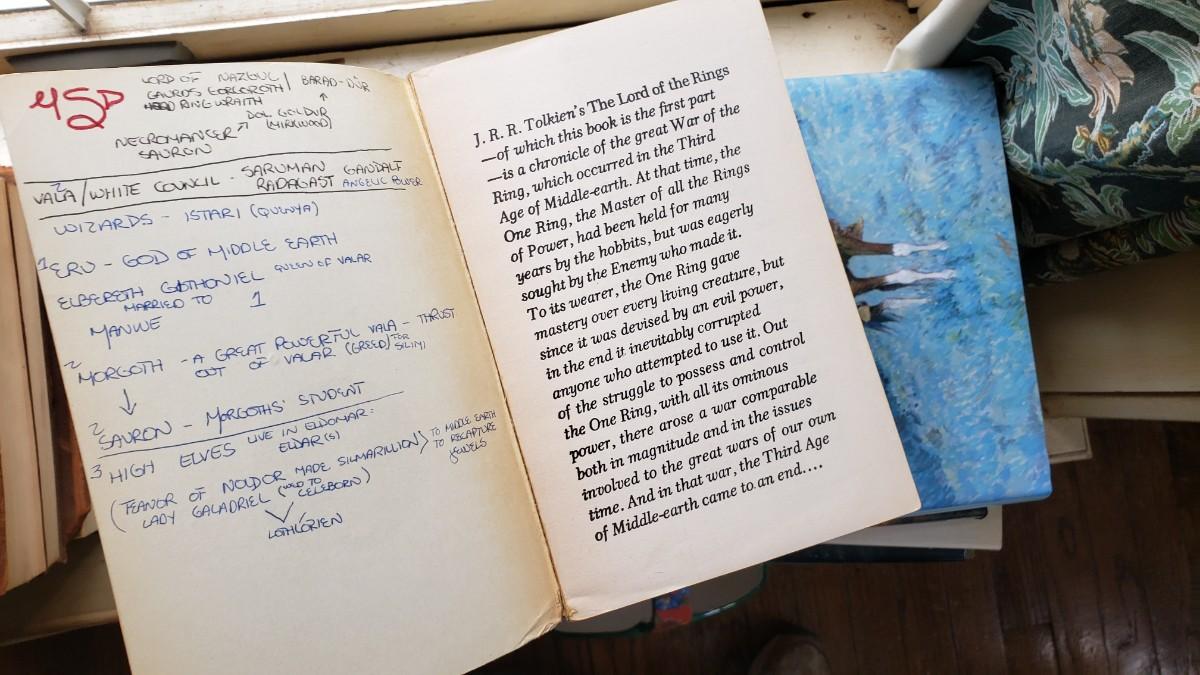 45p
LORD OF NAZGUL / BARAD-DUR
GAUROS GORGOROTH
RING WRAITH
DOL GOLDUR
(MIRKWOOD)
NECROMANCER
SAURON
2
VALA/WHITE COUNCIL - SARUMAN GANDALF
RADAGAST ANGELIC POWER
WIZARDS - ISTARI (QUENYA)
1 ERU - GOD OF MIDDLE EARTH
ELBERETH GILTHONIEL QUEEN OF VALAR
MARRIED TO 1
MANWE
2
MORGOTH - A GREAT POWERFUL VALA - THRUST
OUT OF VALAR (GREED) FOR
2
SAURON - MORGOTHS' STUDENT
3 HIGH ELVES LIVE IN ELDOMAR:
ELDAR(S)
(FEANOR OF NOLDOR MADE SILMARILLION) TO MIDDLE EARTH
TO RECAPTURE
JEWELS
LADY GALADRIEL (WED TO
CELEBORN)
LOTHLÓRIEN
J. R. R. Tolkien's The Lord of the Rings
—of which this book is the first part
—is a chronicle of the great War of the
Ring, which occurred in the Third
Age of Middle-earth. At that time, the
One Ring, the Master of all the Rings
of Power, had been held for many
years by the hobbits, but was eagerly
sought by the Enemy who made it.
To its wearer, the One Ring gave
mastery over every living creature, but
since it was devised by an evil power,
in the end it inevitably corrupted
anyone who attempted to use it. Out
of the struggle to possess and control
the One Ring, with all its ominous
power, there arose a war comparable
both in magnitude and in the issues
involved to the great wars of our own
time. And in that war, the Third Age
of Middle-earth came to an end....